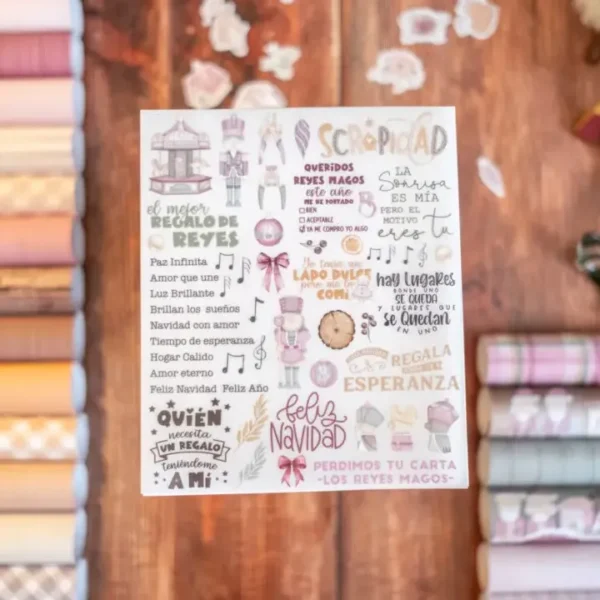 SCRAPIDAD
QUERIDOS
REYES MAGOS
este año
ME HE PORTADO
BIEN
ACEPTABLE
YA ME COMPRO YO ALGO
LA
Sonrisa
ES MÍA
PERO EL
MOTIVO
eres tu
el mejor
REGALO DE
REYES
Paz Infinita
Amor que une
Luz Brillante
Brillan los sueños
Navidad con amor
Tiempo de esperanza
Hogar Calido
Amor eterno
Feliz Navidad Feliz Año
LADO DULCE
COMÍ
hay lugares
DONDE UNO
SE QUEDA
Y LUGARES QUE
se Quedan
EN UNO
REGALA
ESPERANZA
QUIÉN
necesita
UN REGALO
teniéndome
A MÍ
feliz
NAVIDAD
PERDIMOS TU CARTA
-LOS REYES MAGOS-